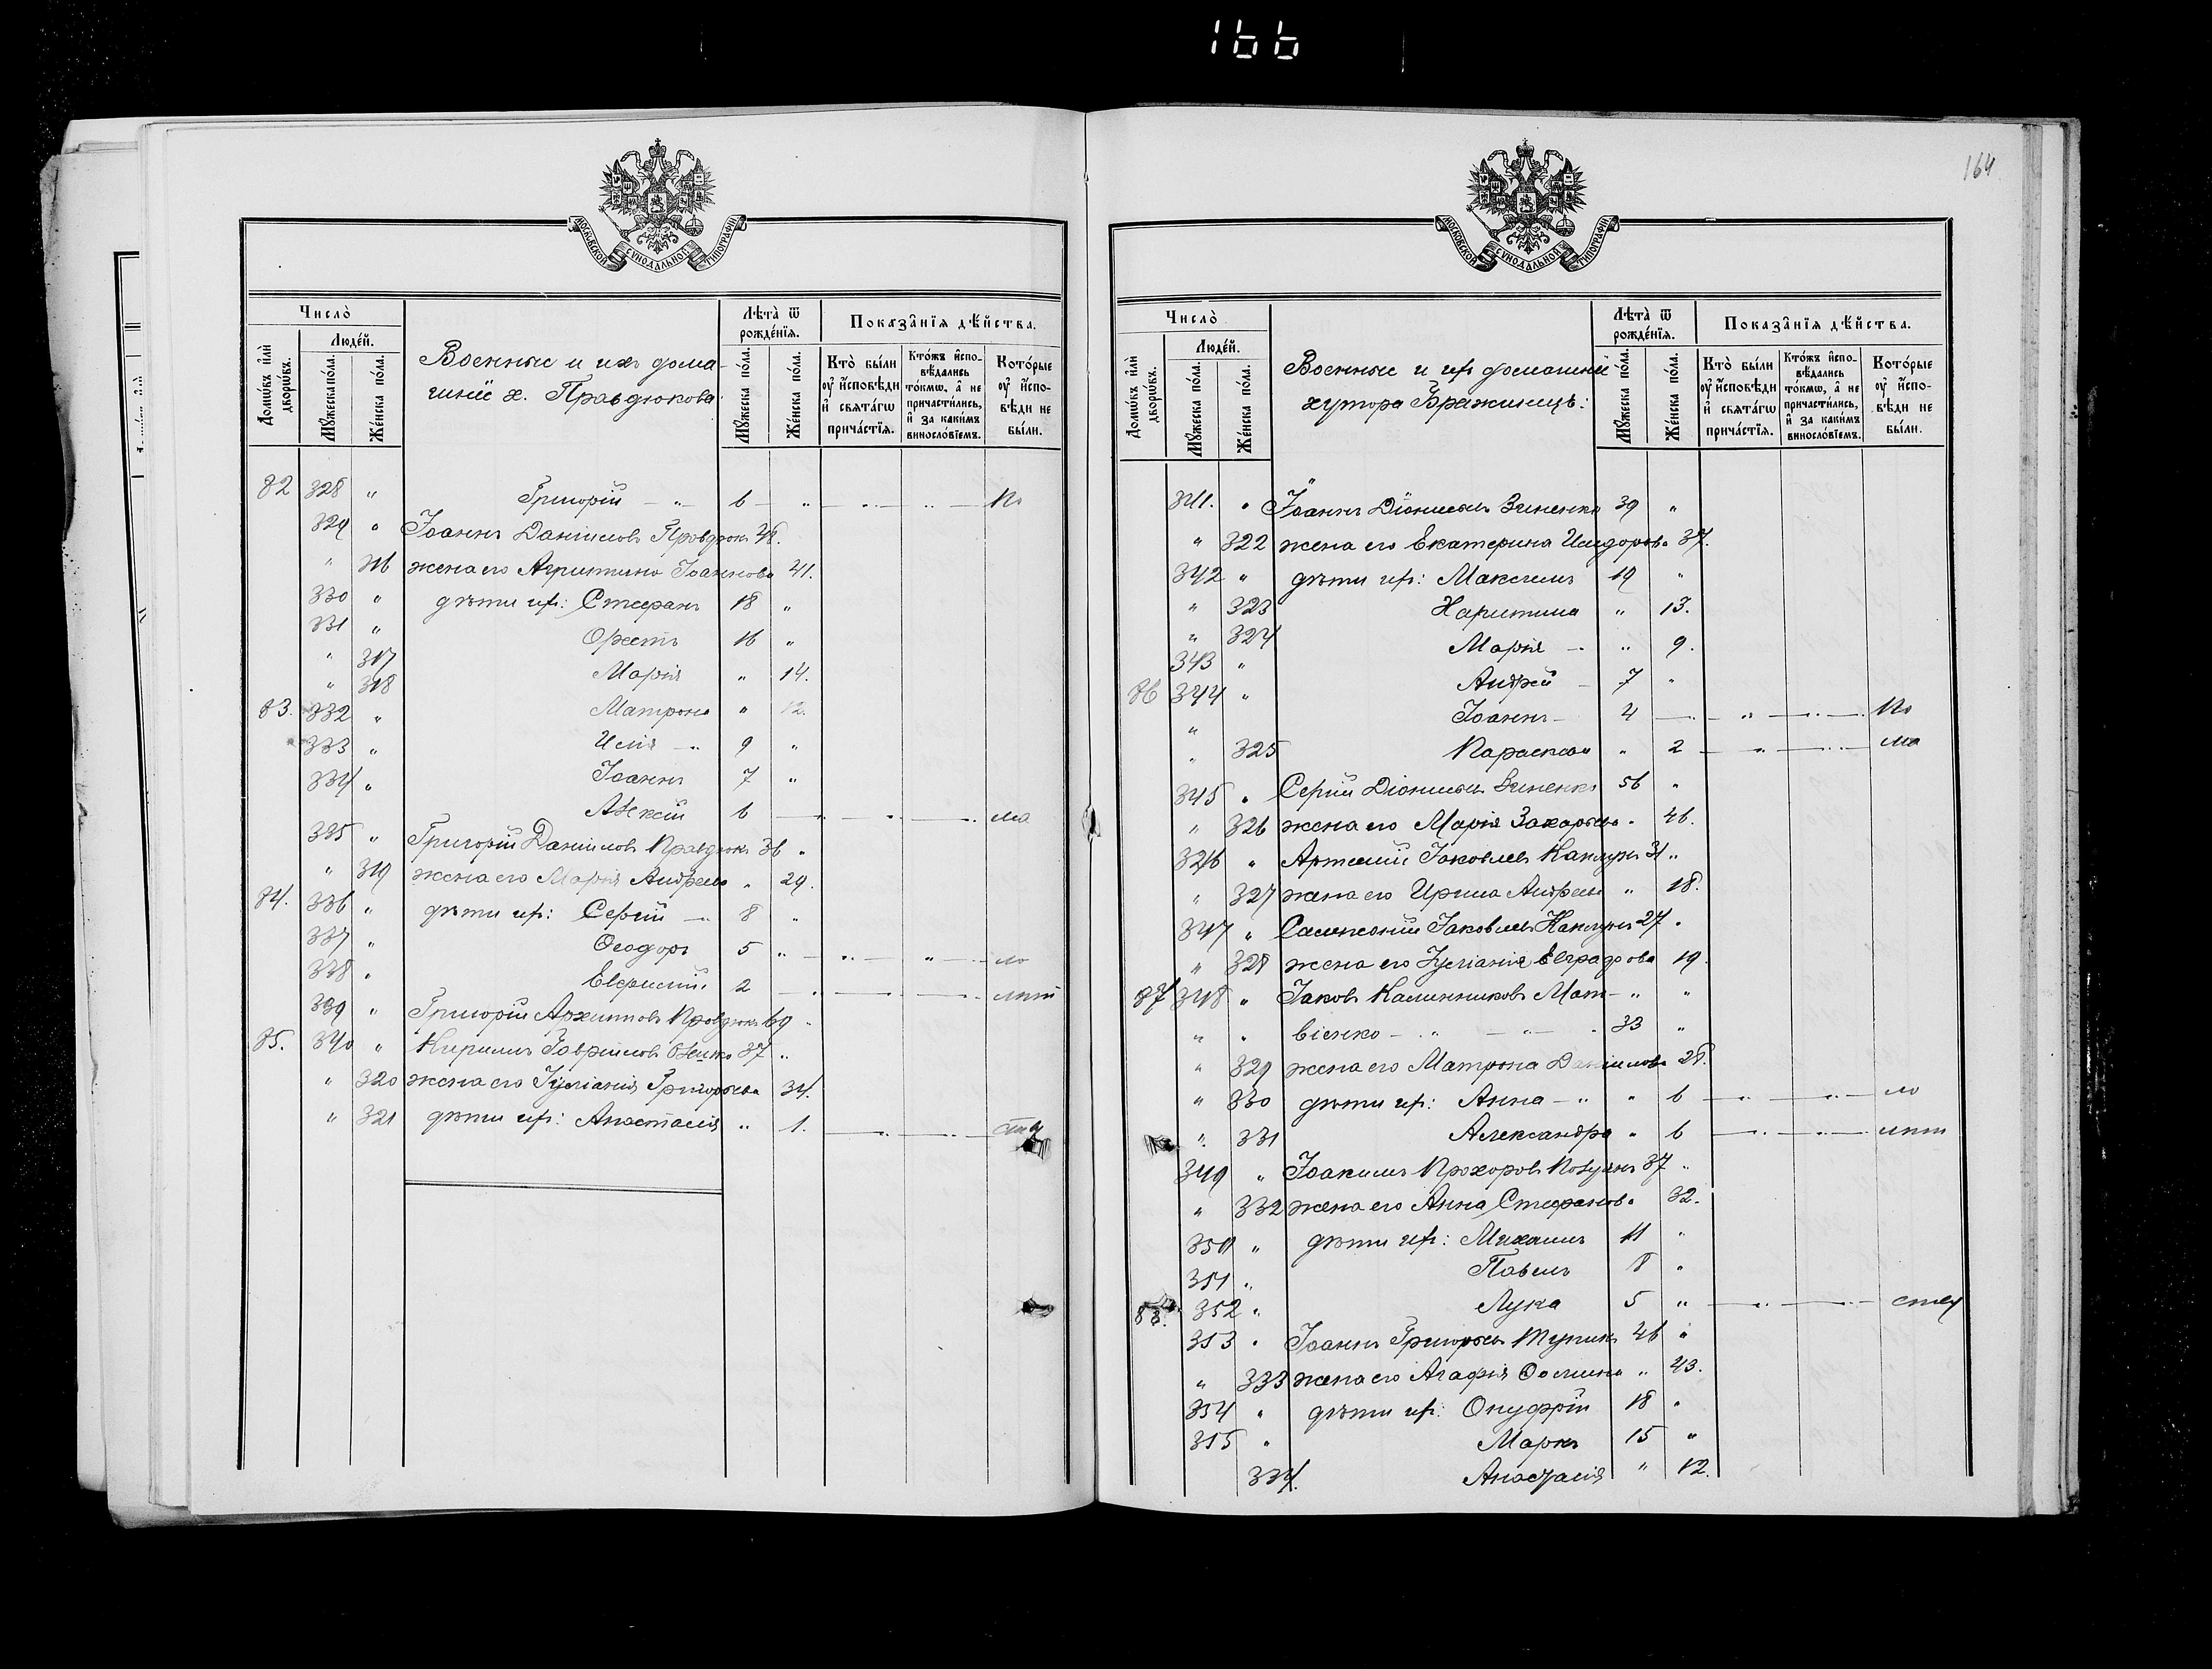 166
164
МОСКОВСКОЙ СѴНОДАЛЬНОЙ ТИПОГРАФІИ
Число̀
Домѡвъ и҆лѝ дворѡвъ.
Люде́й.
Мꙋ́жеска по́ла.
Же́нска по́ла.
Военные и ихъ дома-
шніе х. Правдюкова
Лѣта̀ ѿ рожде́нїѧ.
Мꙋ́жеска по́ла.
Же́нска по́ла.
Показа̑нїѧ дѣ́йства.
Кто̀ бы́ли оу҆ и҆́сповѣди и҆ свѧта́гѡ прича́стїѧ.
Кто́жъ и҆спо-вѣ́дались то́кмѡ, а҆ не причасти́лись, и҆ за каки́мъ виносло́вїемъ.
Кото́рые оу҆ и҆́спо-вѣди не бы́ли.
82 328 " Григорій — " — 6 — " — " — " — по
329 " Іоаннъ Даніиловъ Правдюкъ 48.
" 316 жена его Агрипина Іоаннова 41.
330 " дѣти их: Стефанъ 18 "
331 " Орестъ 16 "
" 317 Марія " 14.
" 318
83. 332 " Матрона " 12.
333 " Илія — " 9 "
334 " Іоаннъ 7 "
Алексій 6 — " — " — " — ма
335 " Григорій Даніиловъ Правдюкъ 36 "
" 319 жена его Марія Андреева " 29.
84. 336 " дѣти их: Сергій — " 8 "
337 " Ѳеодоръ 5 " — " — " — ло
338 " Евфимій 2 — " — " — лѣт
339 " Григорій Архиповъ Правдюкъ 69 "
85. 340 " Кириллъ Гавриловъ 37 "
" 320 жена его Іуліанія Григорьева 34.
" 321 дѣти их: Анастасія " 1. — " — " — ству
МОСКОВСКОЙ СѴНОДАЛЬНОЙ ТИПОГРАФІИ
Число̀
Домѡвъ и҆лѝ дворѡвъ.
Люде́й.
Мꙋ́жеска по́ла.
Же́нска по́ла.
Военные и их домашніе
хутора Бражинецъ:
Лѣта̀ ѿ рожде́нїѧ.
Мꙋ́жеска по́ла.
Же́нска по́ла.
Показа̑нїѧ дѣ́йства.
Кто̀ бы́ли оу҆ и҆́сповѣди и҆ свѧта́гѡ прича́стїѧ.
Кто́жъ и҆спо-вѣ́дались то́кмѡ, а҆ не причасти́лись, и҆ за каки́мъ виносло́вїемъ.
Кото́рые оу҆ и҆́спо-вѣди не бы́ли.
341. " Іоаннъ Діонисіевъ Зиненко 39 "
" 322 жена его Екатерина Исидорова 37.
342 " дѣти их: Максимъ 19 "
" 323 Харитина " 13.
" 324 Марія — " 9.
343 " Андрей — 7 "
86 344 " Іоаннъ — 4 — " — " — по
" 325 Параскева " 2 — " — " — ма
345 " Сергій Діонисіевъ Зиненко 56 "
" 326 жена его Марія Захарьева " 46.
326 " Артемій Іаковлевъ 31 "
" 327 жена его Ирина Андреева " 18.
347 " Іаковлевъ 27 "
" 328 жена его Іуліанія Евграфова 19.
87 348 " Іаковъ Каллиниковъ Мат- " "
" " віенко — " — " — 33 "
" 329 жена его Матрона Даніилова 28.
" 330 дѣти их: Анна — " " 6 — " — " — ло
" 331 Александра " 6 — " — " — лѣт
349 " Іоакимъ Прохоровъ 37 "
" 332 жена его Анна Стефанова 32.
350 " дѣти их: Михаилъ 11 "
351 " Павелъ 8 "
88. 352 " Лука 5 " — " — " — ству
353 " Іоаннъ Григорьевъ Тупикъ 46 "
" 333 жена его Агафія Ѳомина " 43.
354 " дѣти их: Онуфрій 18 "
355 " Маркъ 15 "
334. Анастасія " 12.